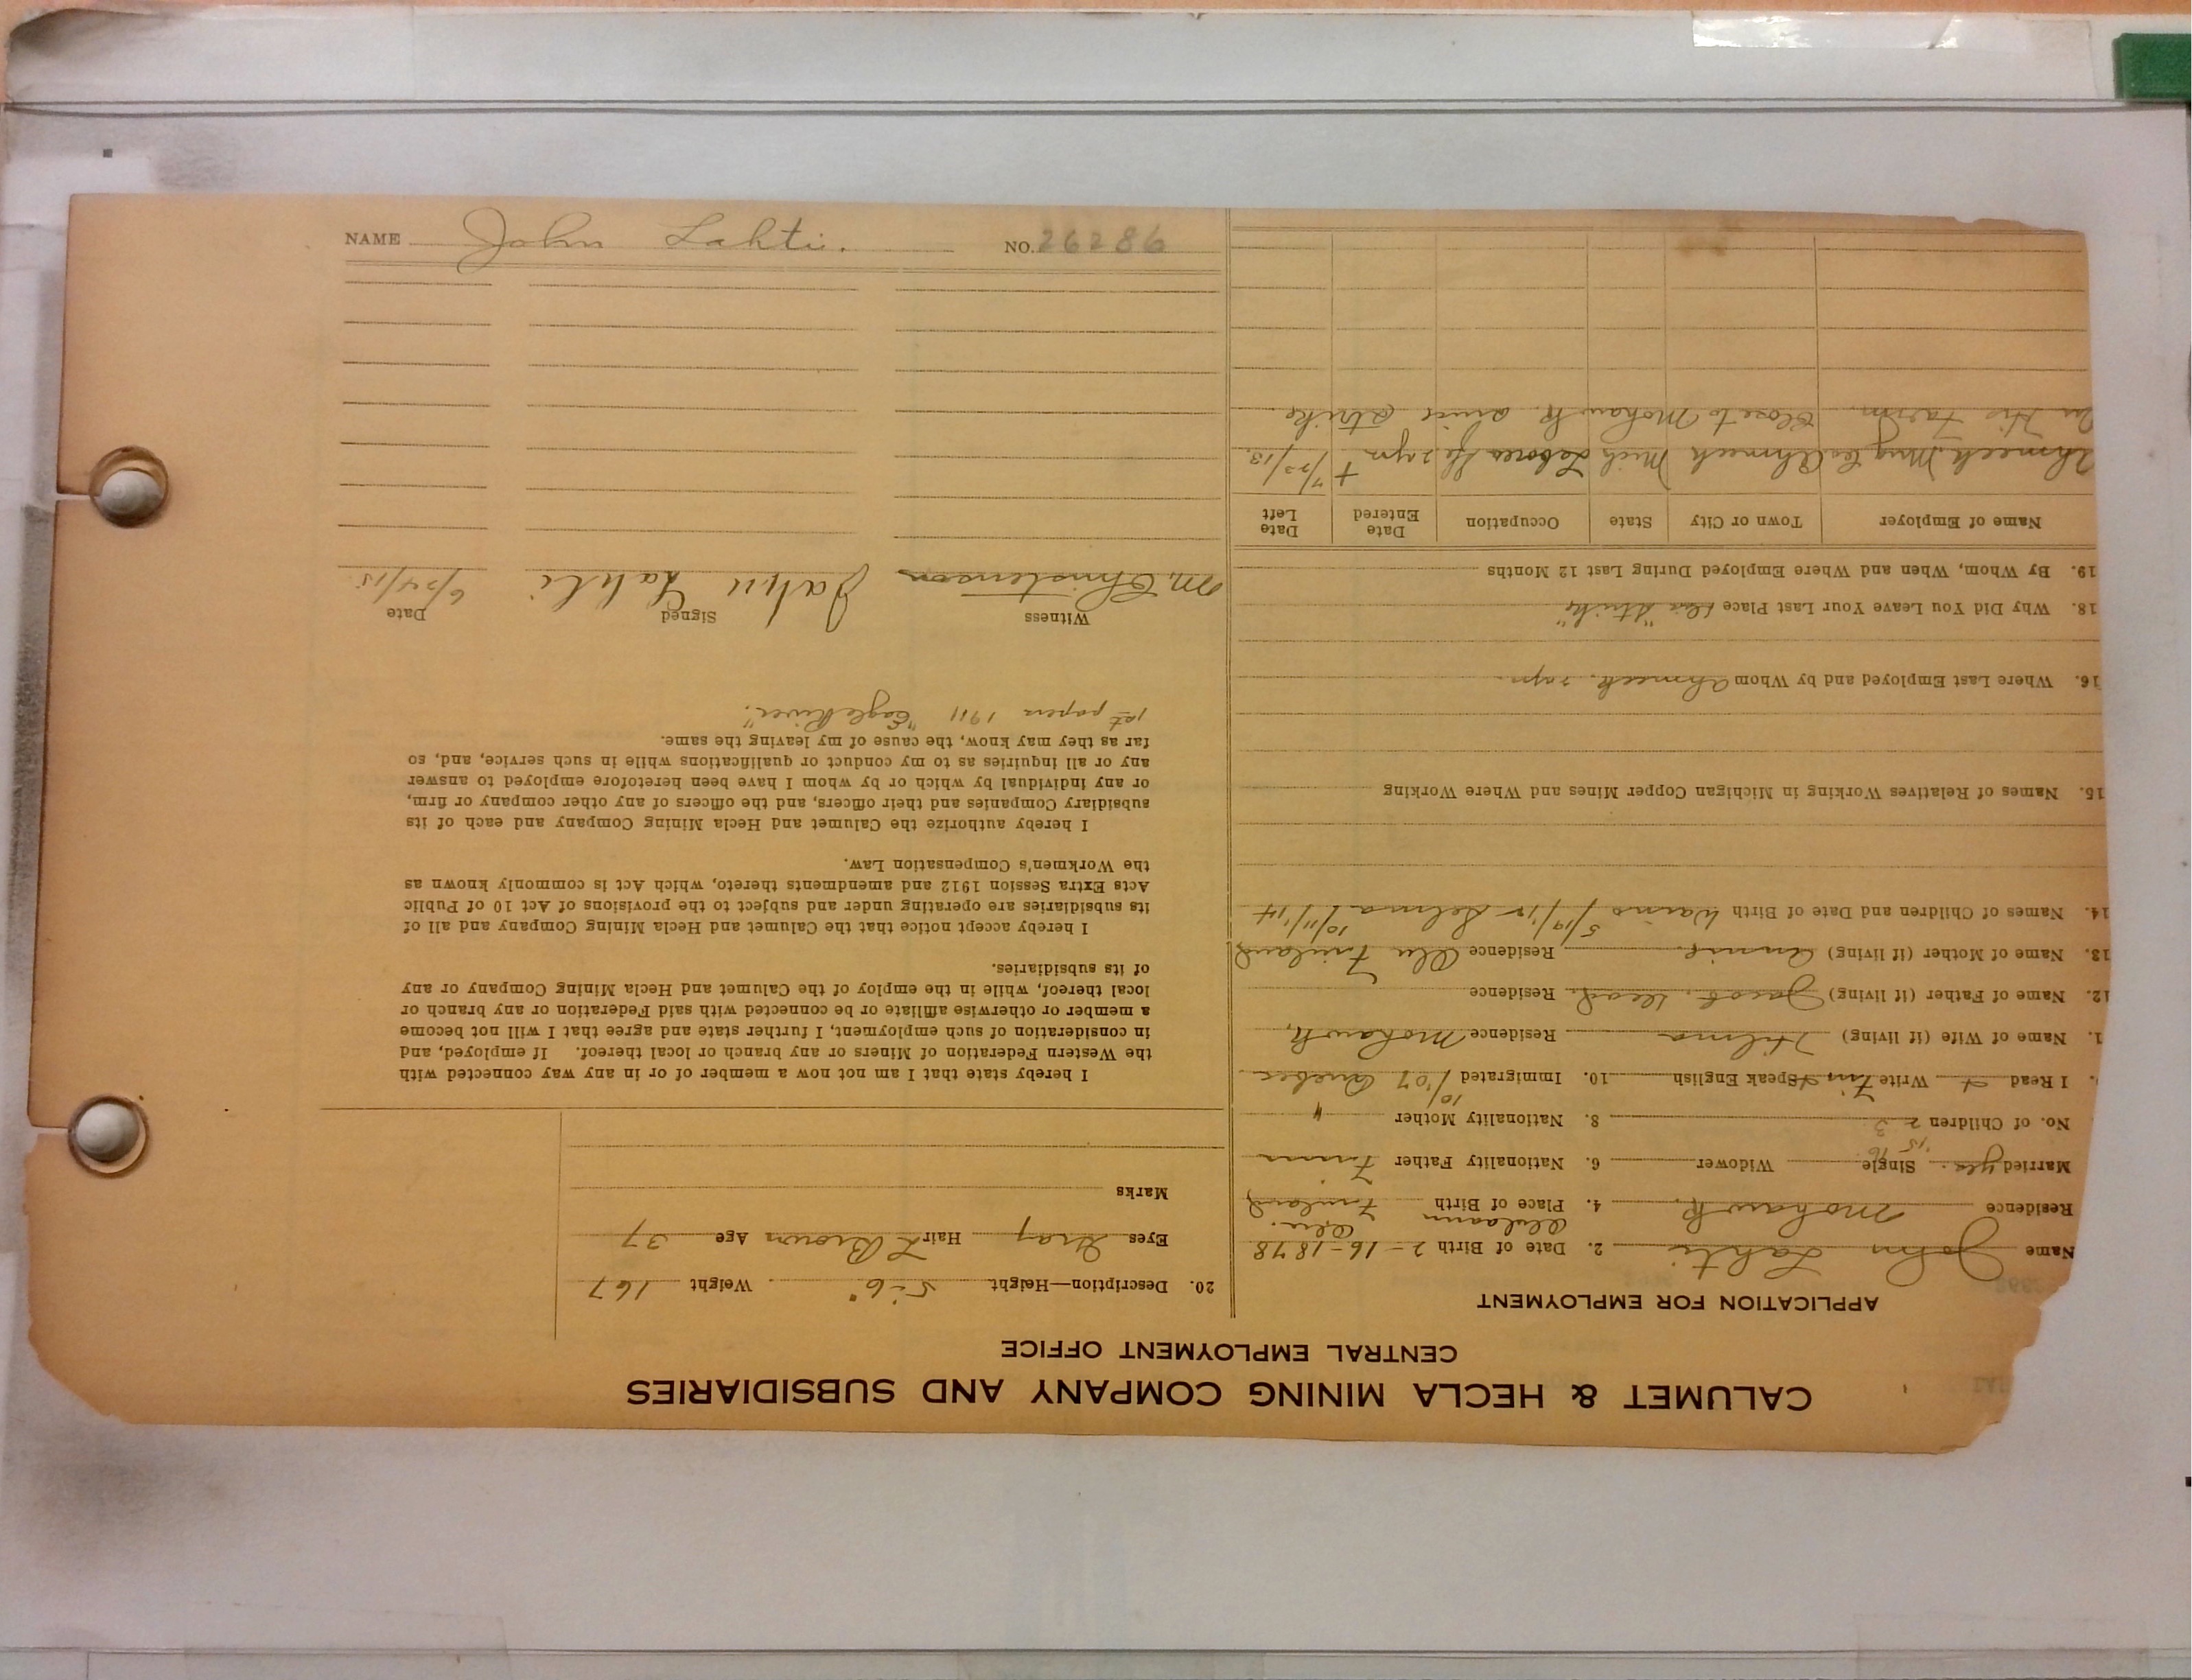 NAME John Lahti. NO. 26286
CALUMET & HECLA MINING COMPANY AND SUBSIDIARIES
CENTRAL EMPLOYMENT OFFICE
APPLICATION FOR EMPLOYMENT
Name John Lahti 2. Date of Birth 2-16-1878
Residence Mohawk. 4. Place of Birth Finland
Married yes. Single Widower 6. Nationality Father Finn
No. of Children 2 3 8. Nationality Mother "
I Read + Write Finn + Speak English 10. Immigrated 10/'07 Quebec
1. Name of Wife (if living) Hilma Residence Mohawk,
12. Name of Father (if living) Jacob. dead. Residence
13. Name of Mother (if living) Residence Finland
14. Names of Children and Date of Birth Waino 5/19/'12 Selma 10/11/'14
15. Names of Relatives Working in Michigan Copper Mines and Where Working
16. Where Last Employed and by Whom Ahmeek. 2 yrs.
18. Why Did You Leave Your Last Place "Strike"
19. By Whom, When and Where Employed During Last 12 Months
Name of Employer Town or City State Occupation Date Entered Date Left
Ahmeek Mng Co Ahmeek Mich Laborer 2 yrs + 7/23/13.
On His Farm. Close to Mohawk. since strike.
20. Description—Height 5-6" Weight 167
Eyes Gray Hair L Brown Age 37
Marks
I hereby state that I am not now a member of or in any way connected with
the Western Federation of Miners or any branch or local thereof. If employed, and
in consideration of such employment, I further state and agree that I will not become
a member or otherwise affiliate or be connected with said Federation or any branch or
local thereof, while in the employ of the Calumet and Hecla Mining Company or any
of its subsidiaries.
I hereby accept notice that the Calumet and Hecla Mining Company and all of
its subsidiaries are operating under and subject to the provisions of Act 10 of Public
Acts Extra Session 1912 and amendments thereto, which Act is commonly known as
the Workmen's Compensation Law.
I hereby authorize the Calumet and Hecla Mining Company and each of its
subsidiary Companies and their officers, and the officers of any other company or firm,
or any individual by which or by whom I have been heretofore employed to answer
any or all inquiries as to my conduct or qualifications while in such service, and, so
far as they may know, the cause of my leaving the same.
1st papers 1911 "Eagle River."
Witness Signed Date
M. Christenson John Lahti 6/24/15